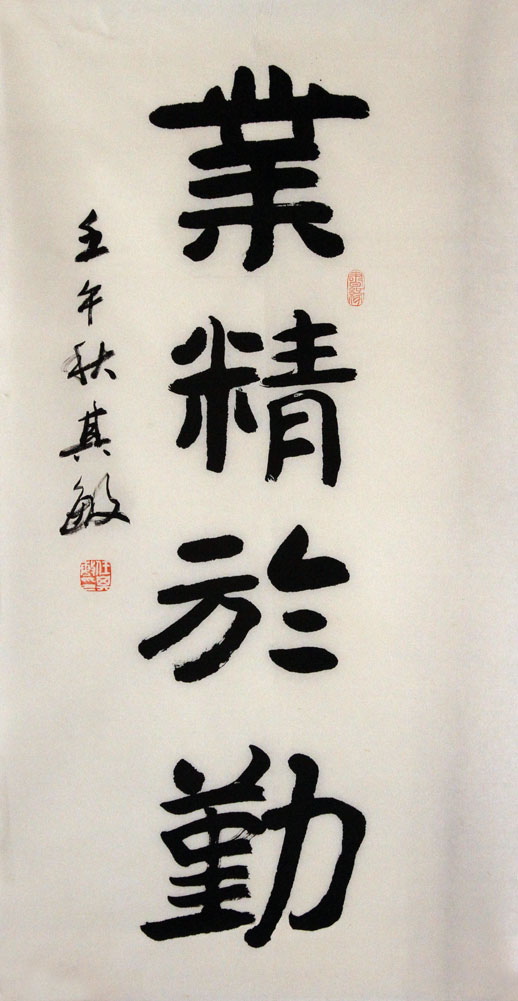 業精於勤
壬午秋其敏